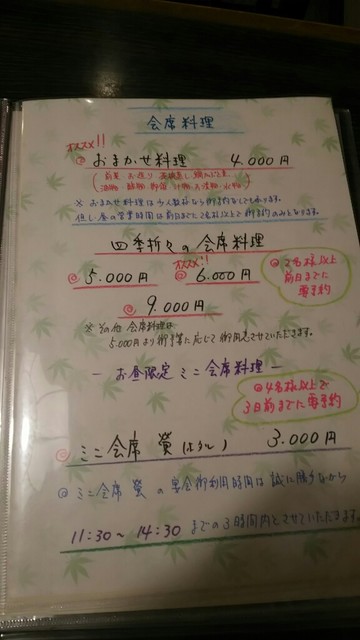 会席料理
オススメ!!
◎おまかせ料理 4.000円
※おまかせ料理は
但し、昼の営業時間は前日までに2名様以上で御予約のみとなります。
四季折々の会席料理
オススメ!!
◎5.000円 ◎6.000円
◎2名様以上
前日までに
要予約
◎9.000円
※その他 会席料理は
5.000円より御予算に応じて御用意させていただきます。
-お昼限定 ミニ会席料理-
◎4名様以上で
3日前までに要予約
◎ミニ会席 蛍(ほたる) 3.000円
◎ミニ会席 の宴会御利用時間は誠に勝手ながら
11:30~14:30 までの3時間内とさせていただきます。